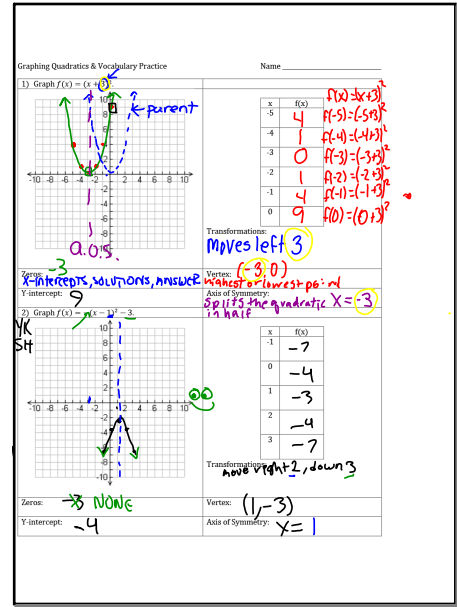 Graphing Quadratics & Vocabulary Practice Name
1) Graph f(x) = (x + 3)²
parent
a.o.s.
x f(x)
-5 4
-4 1
-3 0
-2 1
-1 4
0 9
f(x)=(x+3)²
f(-5)=(-5+3)²
f(-4)=(-4+3)²
f(-3)=(-3+3)²
f(-2)=(-2+3)²
f(-1)=(-1+3)²
f(0)=(0+3)²
Transformations:
Moves left 3
Zeros: -3
X-intercepts, SOLUTIONS, ANSWER
Vertex: (-3,0)
highest or lowest point
Y-intercept: 9
Axis of Symmetry:
splits the quadratic X = -3
in half
2) Graph f(x) = -(x – 1)² – 3.
YK
SH
x f(x)
-1 -7
0 -4
1 -3
2 -4
3 -7
Transformations:
move right 2, down 3
Zeros: NONE
Vertex: (1,-3)
Y-intercept: -4
Axis of Symmetry: X = 1